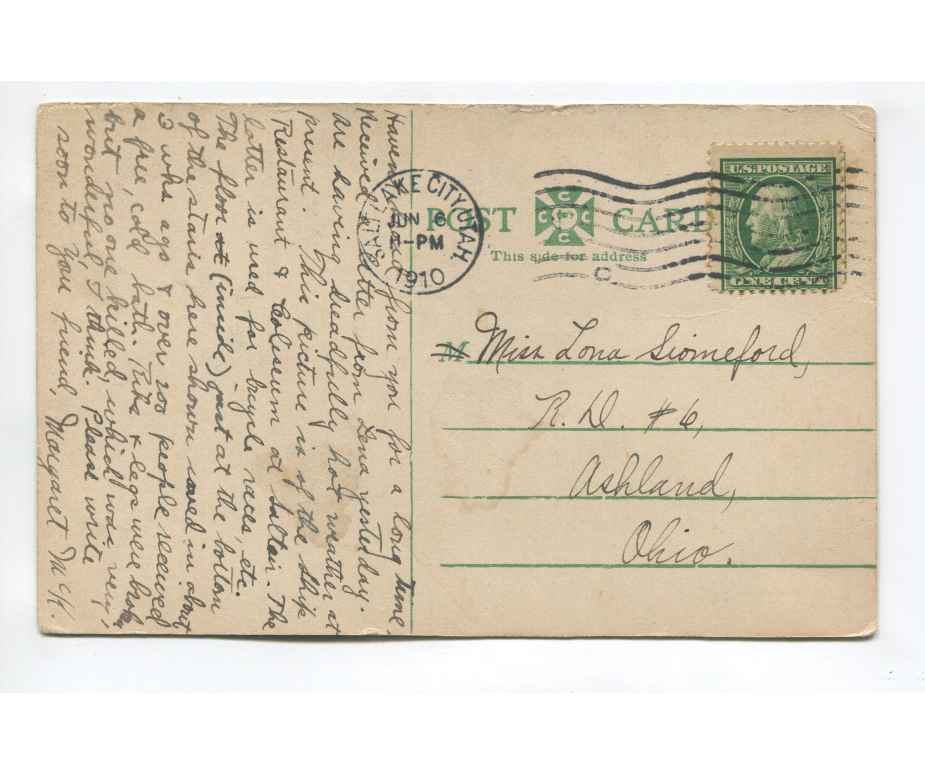 Haven't heard from you for a long time,
Received a letter from Lena yesterday.
Are having dreadfully hot weather at
present. This picture is of the Ship
Restaurant & Coliseum at Saltair. The
latter is used for bicycle races, etc.
The floor (inside) just at the bottom
of the stairs here shown caved in about
3 wks ago & over 200 people received
a free, cold bath. Ribs & legs were broken
but no one killed, which was very,
wonderful, I think. Please write
soon to You friend, Margaret McK.
SALT LAKE CITY, UTAH
JUN 6
5-PM
1910
POST CARD
C C C C
This side for address
U.S. POSTAGE
ONE CENT
C
M Miss Lona
R. D. #6,
Ashland,
Ohio.